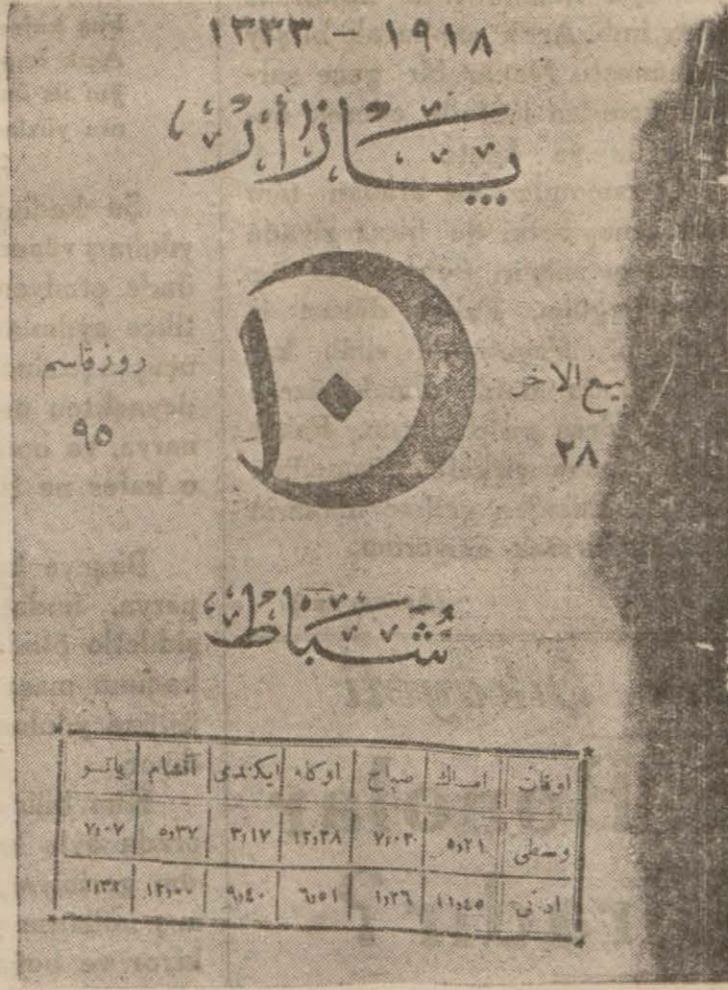 ١٩١٨ - ١٣٣٣
پازار
١٠
روز قاسم
٩٥
الاخر
٢٨
شباط
اوقات امساك صباح اوكله ايكندى آقشام ياتسو
وسطى ٥,٢١ ٧,٠٣ ١٢,٢٨ ٣,١٧ ٥,٣٧ ٧,٠٧
١١,٤٥ ١,٢٦ ٦,٥١ ٩,٤٠ ١٢,٠٠